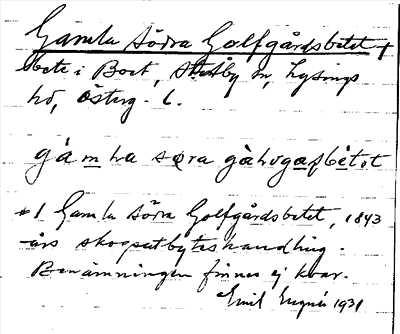 Gamla Södra Golfgårdsbetet +
bete i Bort, Stäby sn, Lysings
hd, Österg. l.
gàmla søra gàlvgaɽbètət
+1 Gamla Södra Golfgårdsbetet, 1843
års skogsutbyteshandling.
Benämningen finnes ej kvar.
Emil 1931